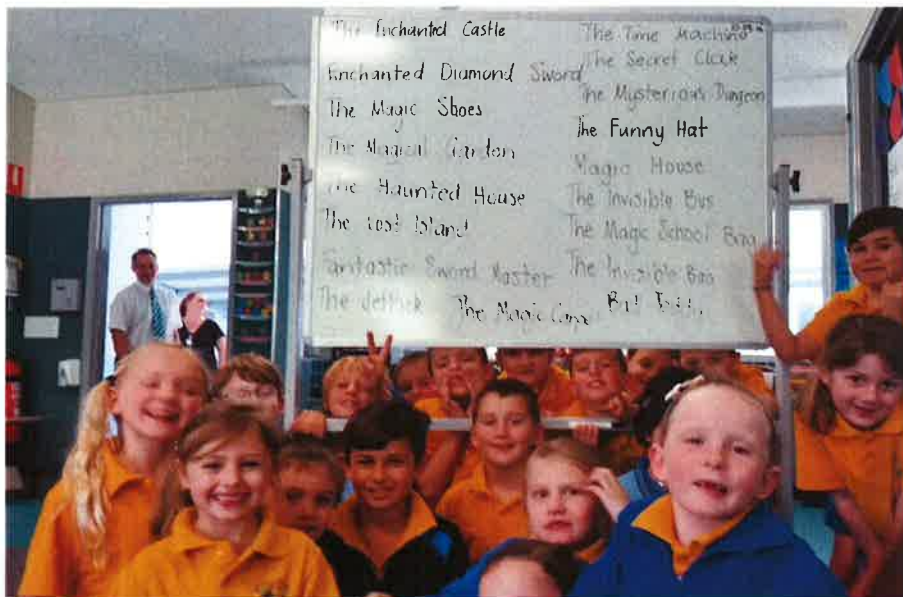 The Enchanted Castle
Enchanted Diamond Sword
The Magic Shoes
The Magical Garden
The Haunted House
The Lost Island
Fantastic Sword Master
The Jetpack
The Magic
The Time Machine
The Secret
The Mysterious Dungeon
The Funny Hat
Magic House
The Invisible Bus
The Magic School Bag
The Invisible